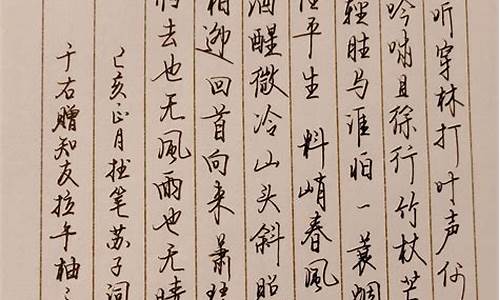 听穿林打叶声何
吟啸且徐行竹杖芒
轻胜马谁怕一蓑烟
任平生 料峭春風
酒醒微冷山头斜照
相迎回首向来萧瑟
归去也无風雨也无晴
己亥正月拙笔苏子词
于右赠知友拉午柚